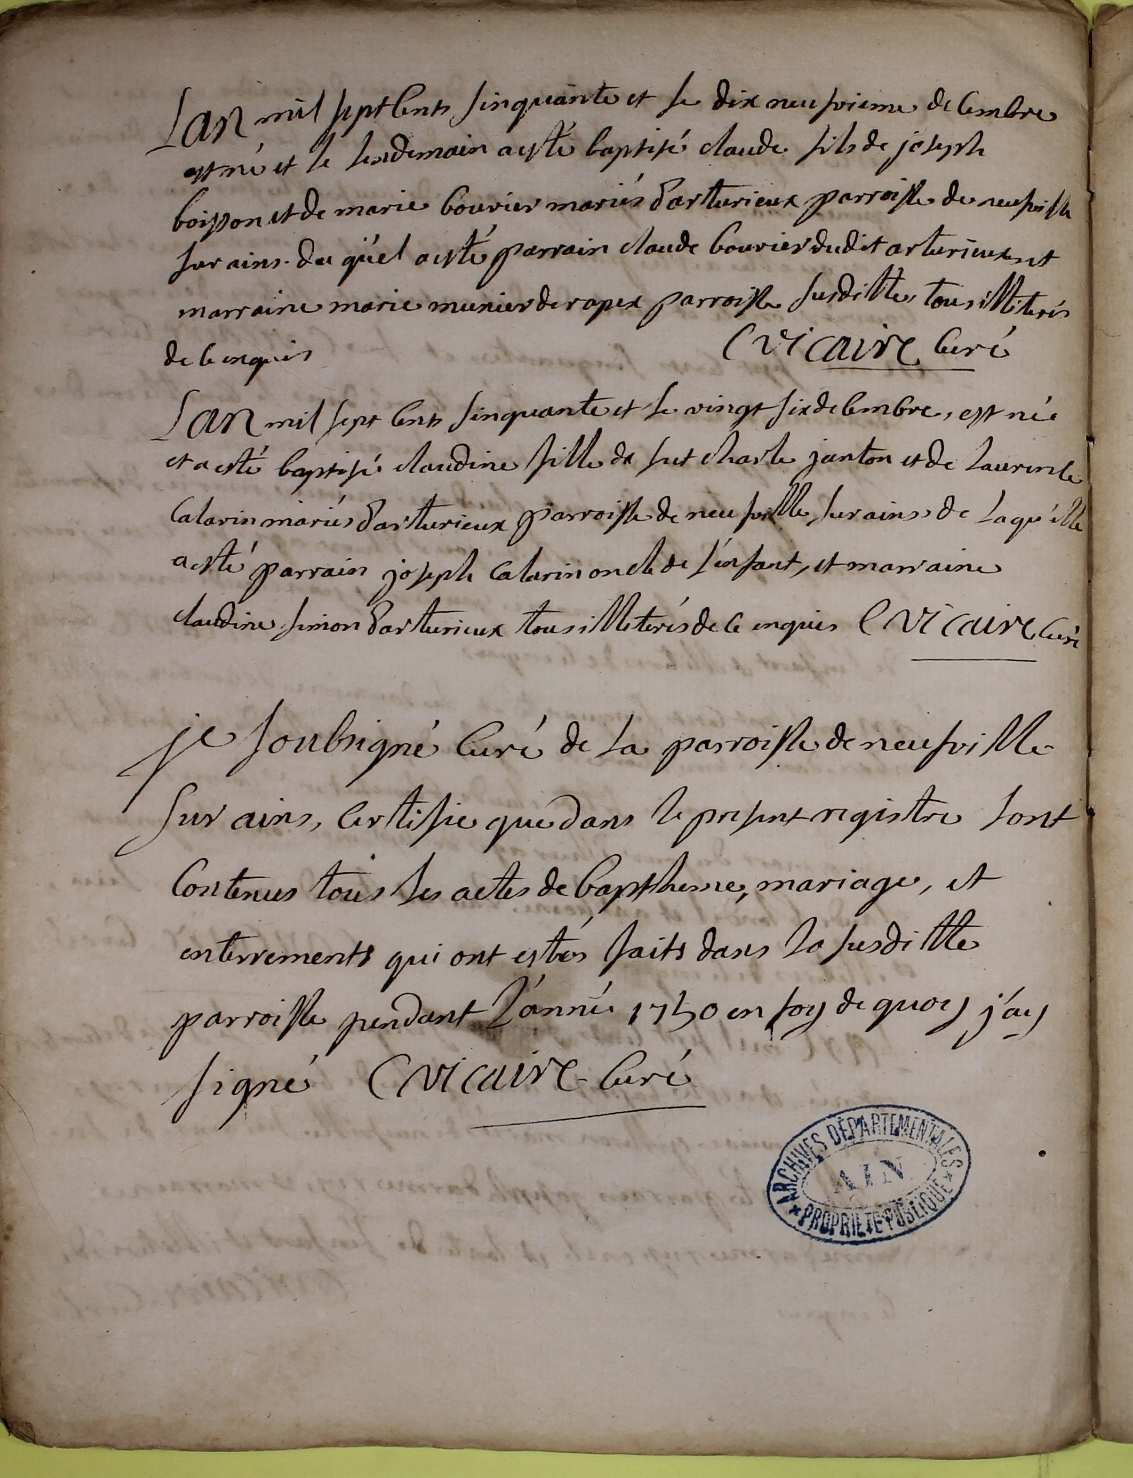 Lan mil sept cents sinquante et le dix neufvieme decembre
est né et le lendemain a esté baptisé claude fils de joseph
boisson et de marie bouvier mariés d'arturieux parroisse de neufville
sur ains. du quel a esté parrain claude bouvier dudit arturieux et
marraine marie munier de rapex parroisse susditte, tous illiterés
de ce enquis C Vicaire curé
Lan mil sept cents sinquante et le vingt six decembre, est née
et a esté baptisée claudine fille de fut charle janton et de laurence
Calarin mariés d'arturieux parroisse de neufville sur ains, de laquelle
a esté parrain joseph Calarin oncle de l'enfant, et marraine
claudine simon d'arturieux tous illiterés de ce enquis C Vicaire curé
je soubsigné Curé de la parroisse de neufville
sur ains, certifie que dans le present registre sont
contenus tous les actes de bapthsme, mariage, et
enterrements qui ont estés faits dans la susditte
parroisse pendant l'année 1750 en foy de quoy j'ay
signé C Vicaire Curé
ARCHIVES DÉPARTEMENTALES
AIN
PROPRIÉTÉ PUBLIQUE